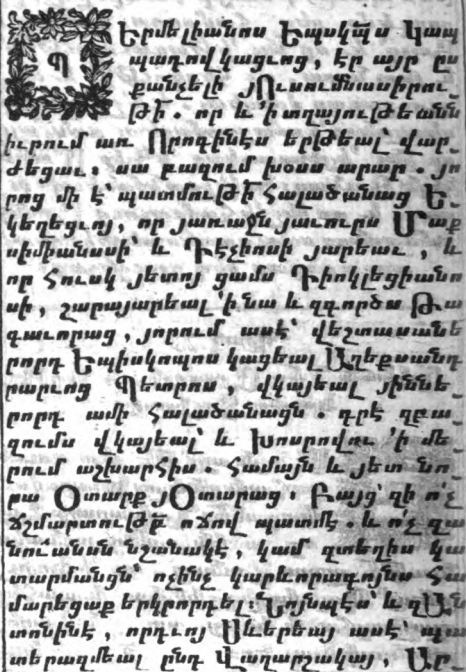 Պ
Երմելիանոս Եպսկպս Կապ
պադովկացւոց, էր այր ըս
քանչելի յՈւսումնասիրու_
թի . որ և 'ի տղայութեանն
իւրում առ Որոգինէս երթեալ վար_
ժեցաւ։ սա բազում խօսս արար . յո
րոց մի է՝ պատմութի Հալածանաց Ե_
կեղեցւոյ, որ յառաջն յաւուրս Մաք
սիմիանոսի՝ և Դէկիոսի յարեաւ , և
որ Հուսկ յետոյ ցամս Դիոկլեցիանո
սի , շարայարեալ 'ի նա և զգործս Թա
գաւորաց , յորում ասէ՝ վեշտասանե
րորդ Եպիսկոպոս կացեալ Աղեքսանդ
րարւոց Պետրոս , վկայեալ յիննե_
րորդ ամի Հալածանացն . գրէ զբա_
զումս վկայեալ՝ և Խոսրովու 'ի մե_
րում աշխարՀիս . Համայն և յետ նո_
րա Օտարք յՕտարաց ։ Բայց՝ զի ո՛չ
ճշմարտութբ ոճով պատմէ . և ո՛չ զա
նուանսն նշանակէ , կամ զտեղիս կա
տարմանցն՝ ոչինչ կարևորագոյնս Հա
մարեցաք երկրորդել։ Նոյնպէս՝ և զԱն
տոնինէ , որդւոյ Սևերեայ ասէ՝ պա
տերազմեալ ընդ Վաղարշակայ , Ար_